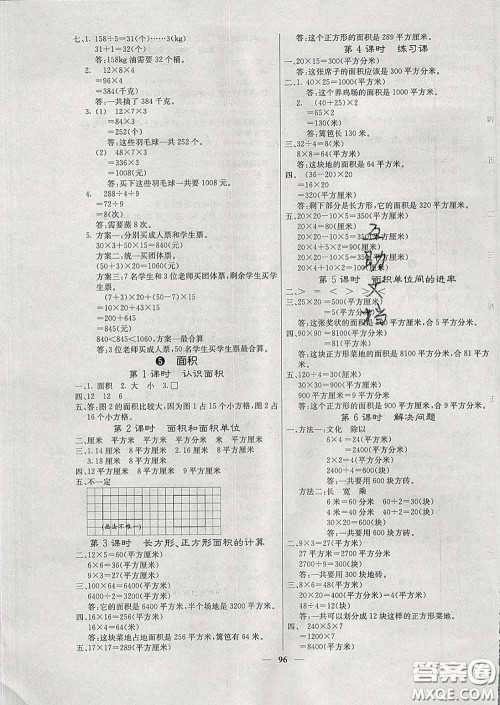 七、1. 158÷5=31(个)……3(kg)
31+1=32(个)
答:158kg 油需要 32 个桶。
2. 12×8×4
=96×4
=384(千克)
答:一共摘了 384 千克。
3. (1) 12×7×3
=84×3
=252(个)
答:这些羽毛球一共 252 个。
(2) 48×7×3
=336×3
=1008(元)
答:买下这些羽毛球一共要 1008 元。
4. 288÷4÷9
=72÷9
=8(次)
答:需要蒸 8 次。
5. 方案一:分别买成人票和学生票。
30×3+50×15=840(元)
方案二:都买团体票。
(3+50)×20=1060(元)
方案三:7 名学生和 3 位老师买团体票,剩余学生买学生票。
(7+3)×20=200(元)
(50-7)×15=645(元)
200+645=845(元)
840<845<1060,方案一最合算
答:3 位老师买成人票,50 名学生买学生票最合算。
5 面积
第 1 课时 认识面积
一、1. 面积 2. 大 小 3. □
四、12 12 6
五、答:图 2 的面积比较大,因为图 1 占 15 个小方格,图 2 占 16 个小方格。
第 2 课时 面积和面积单位
二、厘米 平方米 平方厘米 平方分米 米
三、1. 平方厘米 2. 平方米 3. 厘米 4. 平方分米
四、9 平方厘米 14 平方厘米 8 平方厘米 18 平方厘米
五、不一定
(画法不唯一)
第 3 课时 长方形、正方形面积的计算
二、12×5=60(平方厘米)
6×6=36(平方厘米)
三、80×80=6400(平方米)
6400÷2=3200(平方米)
答:它的面积是 6400 平方米,半个场地是 3200 平方米。
四、16×16=256(平方米)
16×4=64(米)
答:这块菜地占地面积是 256 平方米,篱笆有 64 米。
五、17×17=289(平方厘米)
答:这个正方形的面积是 289 平方厘米。
第 4 课时 练习课
二、1. 20×15=300(平方分米)
答:这张席子的面积应该是 300 平方分米。
2. (1) 40×25=1000(平方米)
答:这个养鸡场的面积是 1000 平方米。
(2) (40+25)×2
=65×2
=130(米)
答:篱笆包长 130 米。
三、32÷4=8(米)
8×8=64(平方米)
答:这块地的面积是 64 平方米。
四、(36-20)×20
=16×20
=320(平方厘米)
答:剩下部分是长方形,它的面积是 320 平方厘米。
五、20×20-10×5=350(平方厘米)
20×4=80(厘米)
20×20-10×5=350(平方厘米)
20×4+5×2=90(厘米)
20×20-10×5=350(平方厘米)
20×4+10×2=100(厘米)
第 5 课时 面积单位间的进率
三、25×20=500(平方厘米)
500 平方厘米=5 平方分米
答:这张奖状的面积是 500 平方厘米,合 5 平方分米。
四、90×90=8100(平方厘米)
8100 平方厘米=81 平方分米
第 6 课时 解决问题
一、方法一:文化 除以
6×4=24(平方米)
24 平方米=2400 平方分米
2×2=4(平方分米)
2400÷4=600(块)
答:一共要用 600 块方砖。
方法二:长 宽 乘
6 米=60 分米 60÷2=30(块)
4 米=40 分米 40÷2=20(块)
30×20=600(块)
答:一共要用 600 块方砖。
二、9×3=27(平方米)
27 平方米=2700 平方分米
2700÷9=300(块)
答:一共要用 300 块地砖。
三、8×6=48(平方米)
2×2=4(平方米)
48÷4=12(块)
答:一共可以划分成 12 块这样的正方形菜地。
四、2. 240×5×7
=1200×7
=8400(平方米)
96
答案圈
MXQE.COM